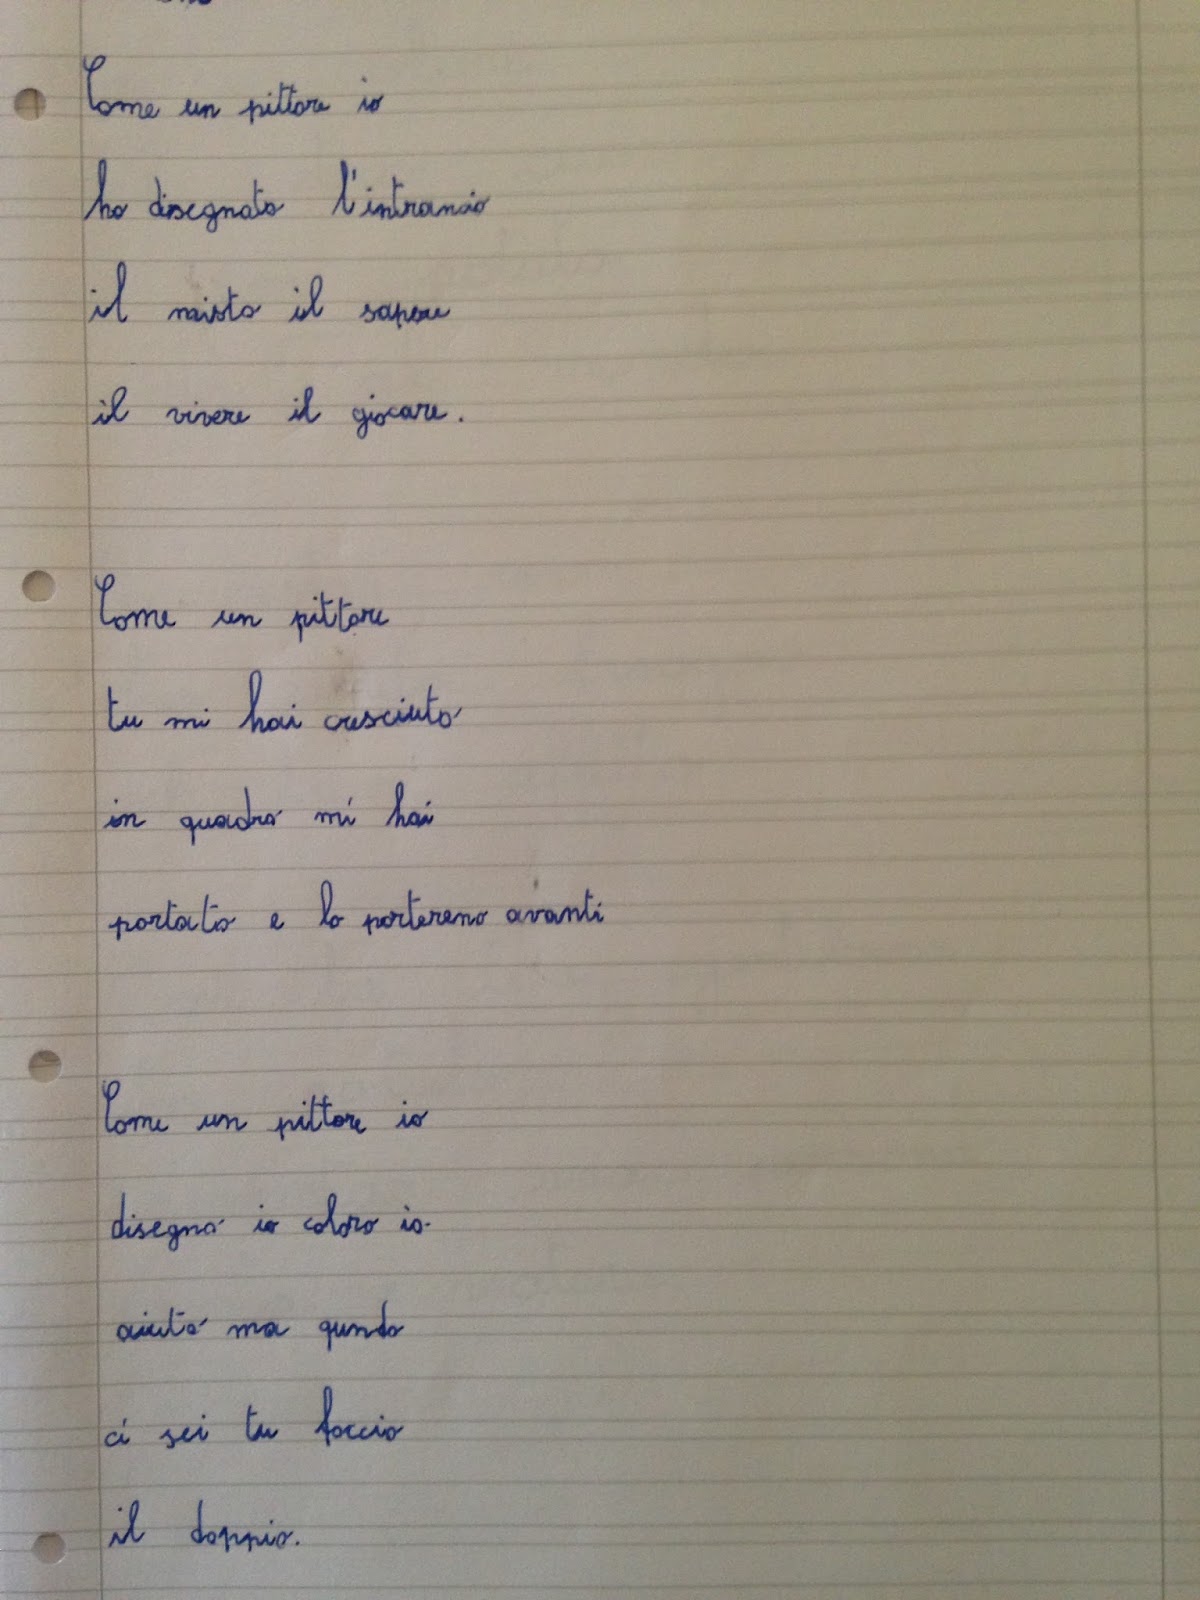 Come un pittore io
ho disegnato l'intrancio
il misto il sapere
il vivere il giocare.
Come un pittore
tu mi hai cresciuto
in quadro mi hai
portato e lo portereno avanti
Come un pittore io
disegno io coloro io
aiuto ma qundo
ci sei tu faccio
il doppio.